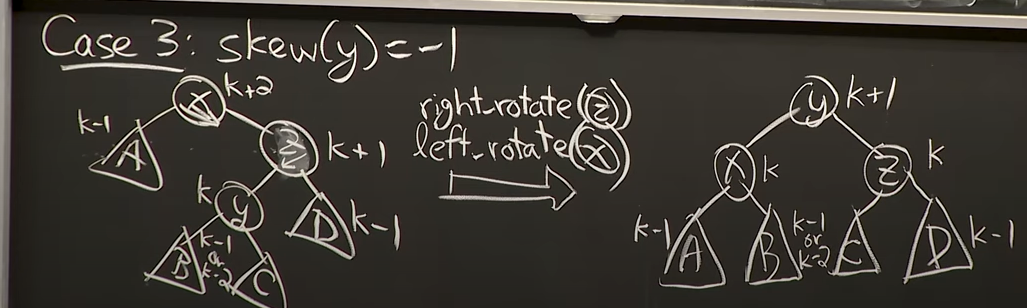 Case 3: skew(y)=-1
x k+2
k-1 A
z k+1
k y
D k-1
B k-1 or k-2 C
right_rotate(z)
left_rotate(x)
y k+1
x k
z k
k-1 A
B k-1 or k-2 C
D k-1